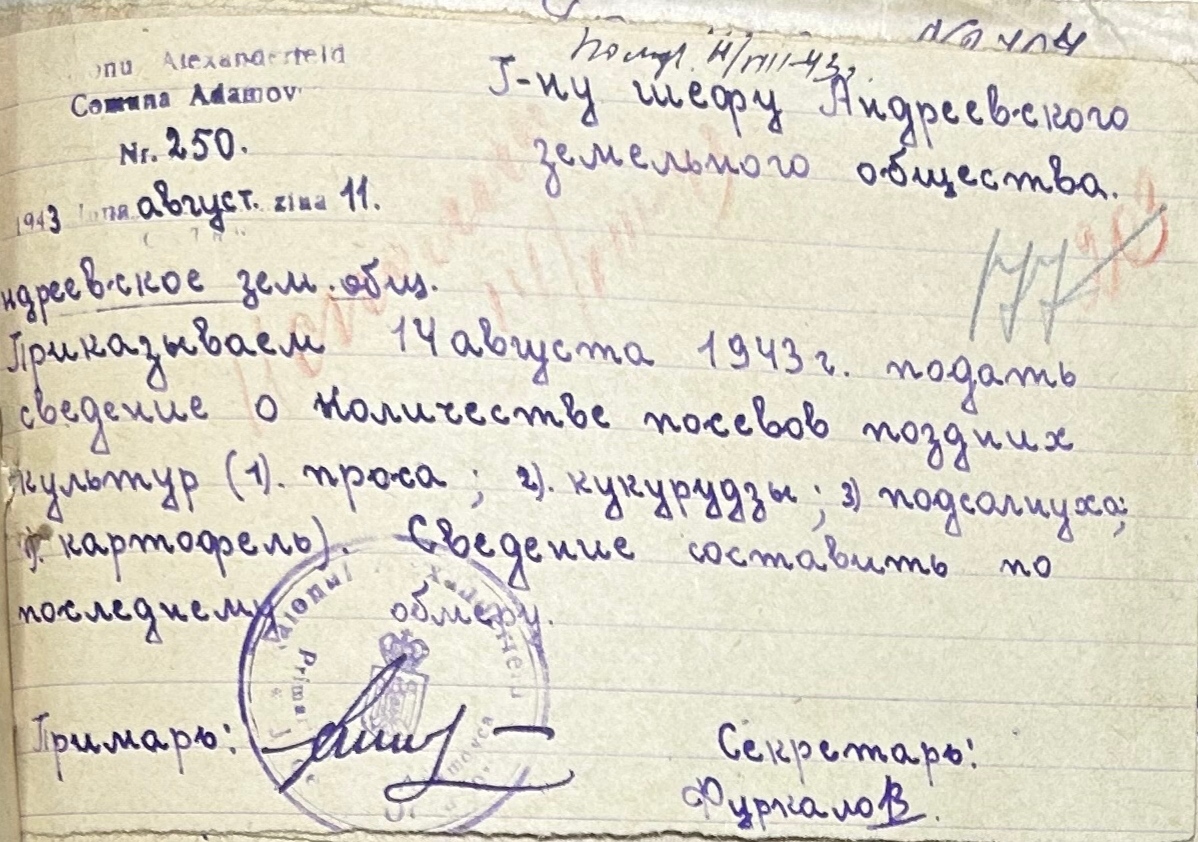 Alexanderfeld
Comuna Adamov
Nr. 250.
1943 август. ziua 11.
№ 414
11/VIII-43г.
Г-ну шефу Андреевского
земельного общества.
ндреевское зем. общ.
Приказываем 14 августа 1943 г. подать
сведение о количестве посевов поздних
культур (1). проса; 2). кукурудзы; 3) подсолнуха;
картофель). Сведение составить по
последнему обмеру.
Примарь:
Секретарь:
Фуркалов.